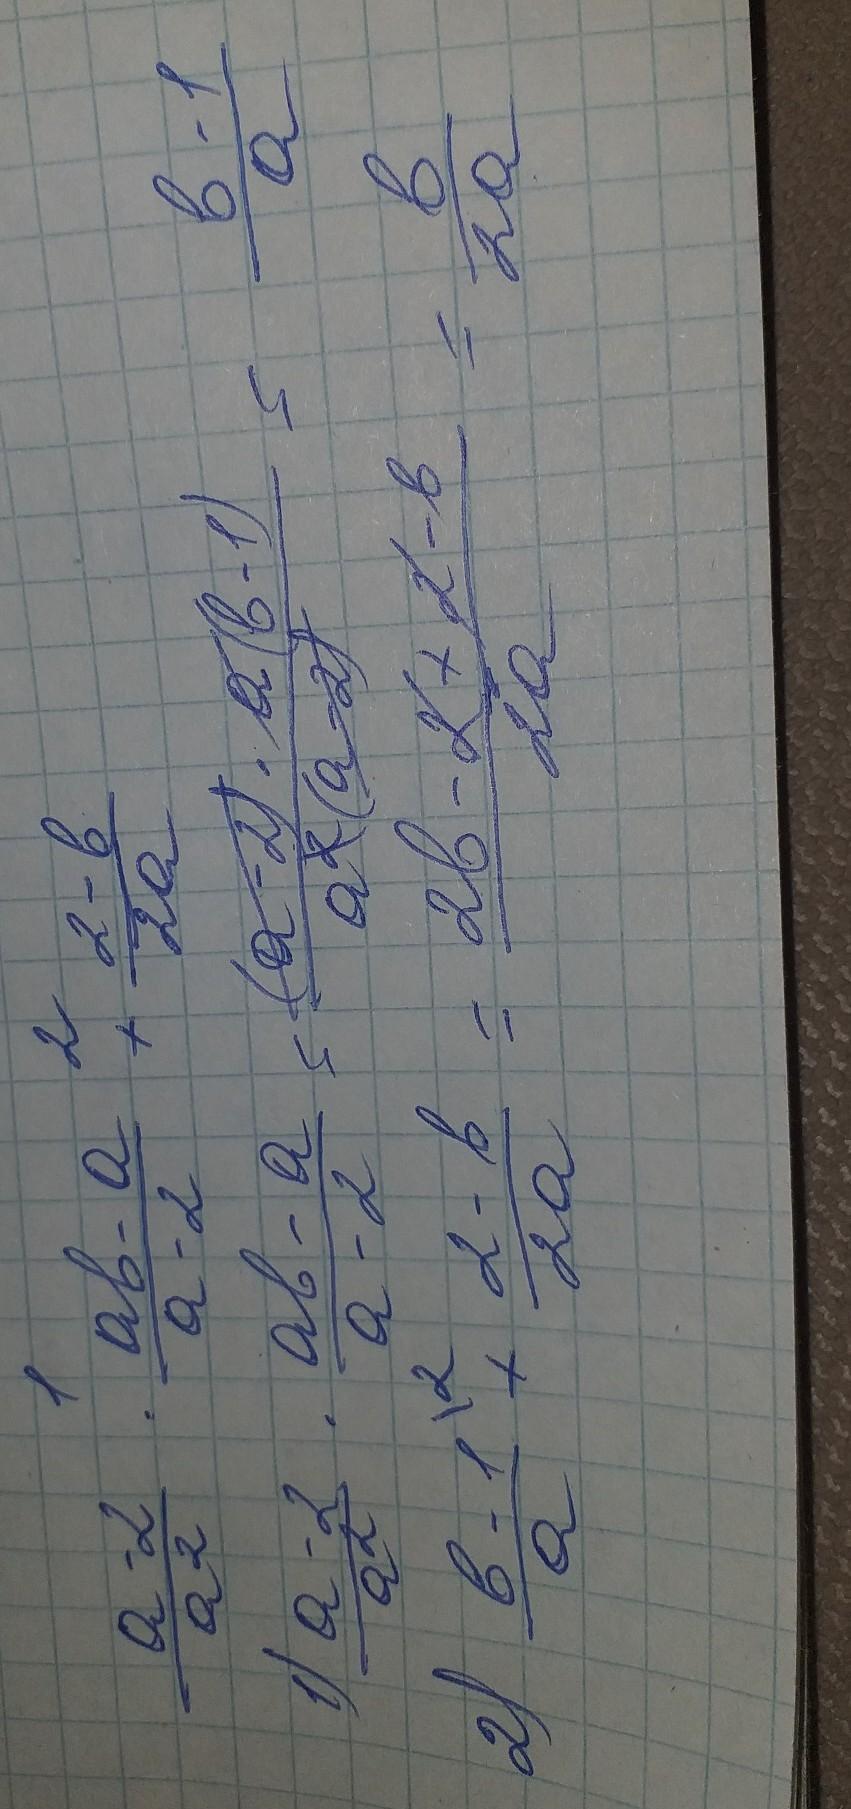 1 2
(a-2)/a² · (ab-a)/(a-2) + (2-b)/2a
1) (a-2)/a² · (ab-a)/(a-2) = ((a-2) · a(b-1))/(a²(a-2)) = (b-1)/a
2) (b-1)/a \2 + (2-b)/2a = (2b-2+2-b)/2a = b/2a